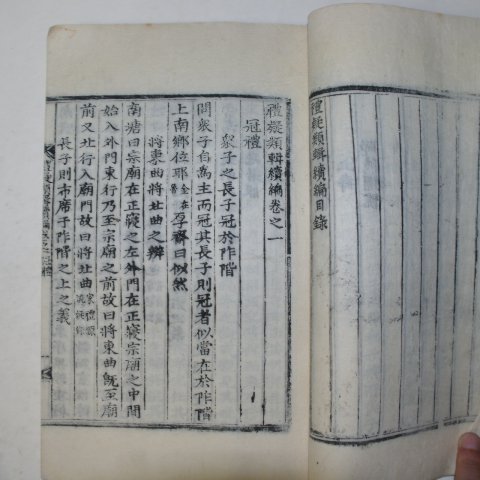 禮疑類輯續編目錄
禮疑類輯續編卷之一
冠禮
衆子之長子冠於阼階
問衆子自爲主而冠其長子則冠者似當在於阼階
上南鄕位耶 厚齋曰似然
將東曲將北曲之辨
南塘曰宗廟在正寢之左外門在正寢宗廟之中間
始入外門東行乃至宗廟之前故曰將東曲旣至廟
前又北行入廟門故曰將北曲
長子則布席于阼階之上之義